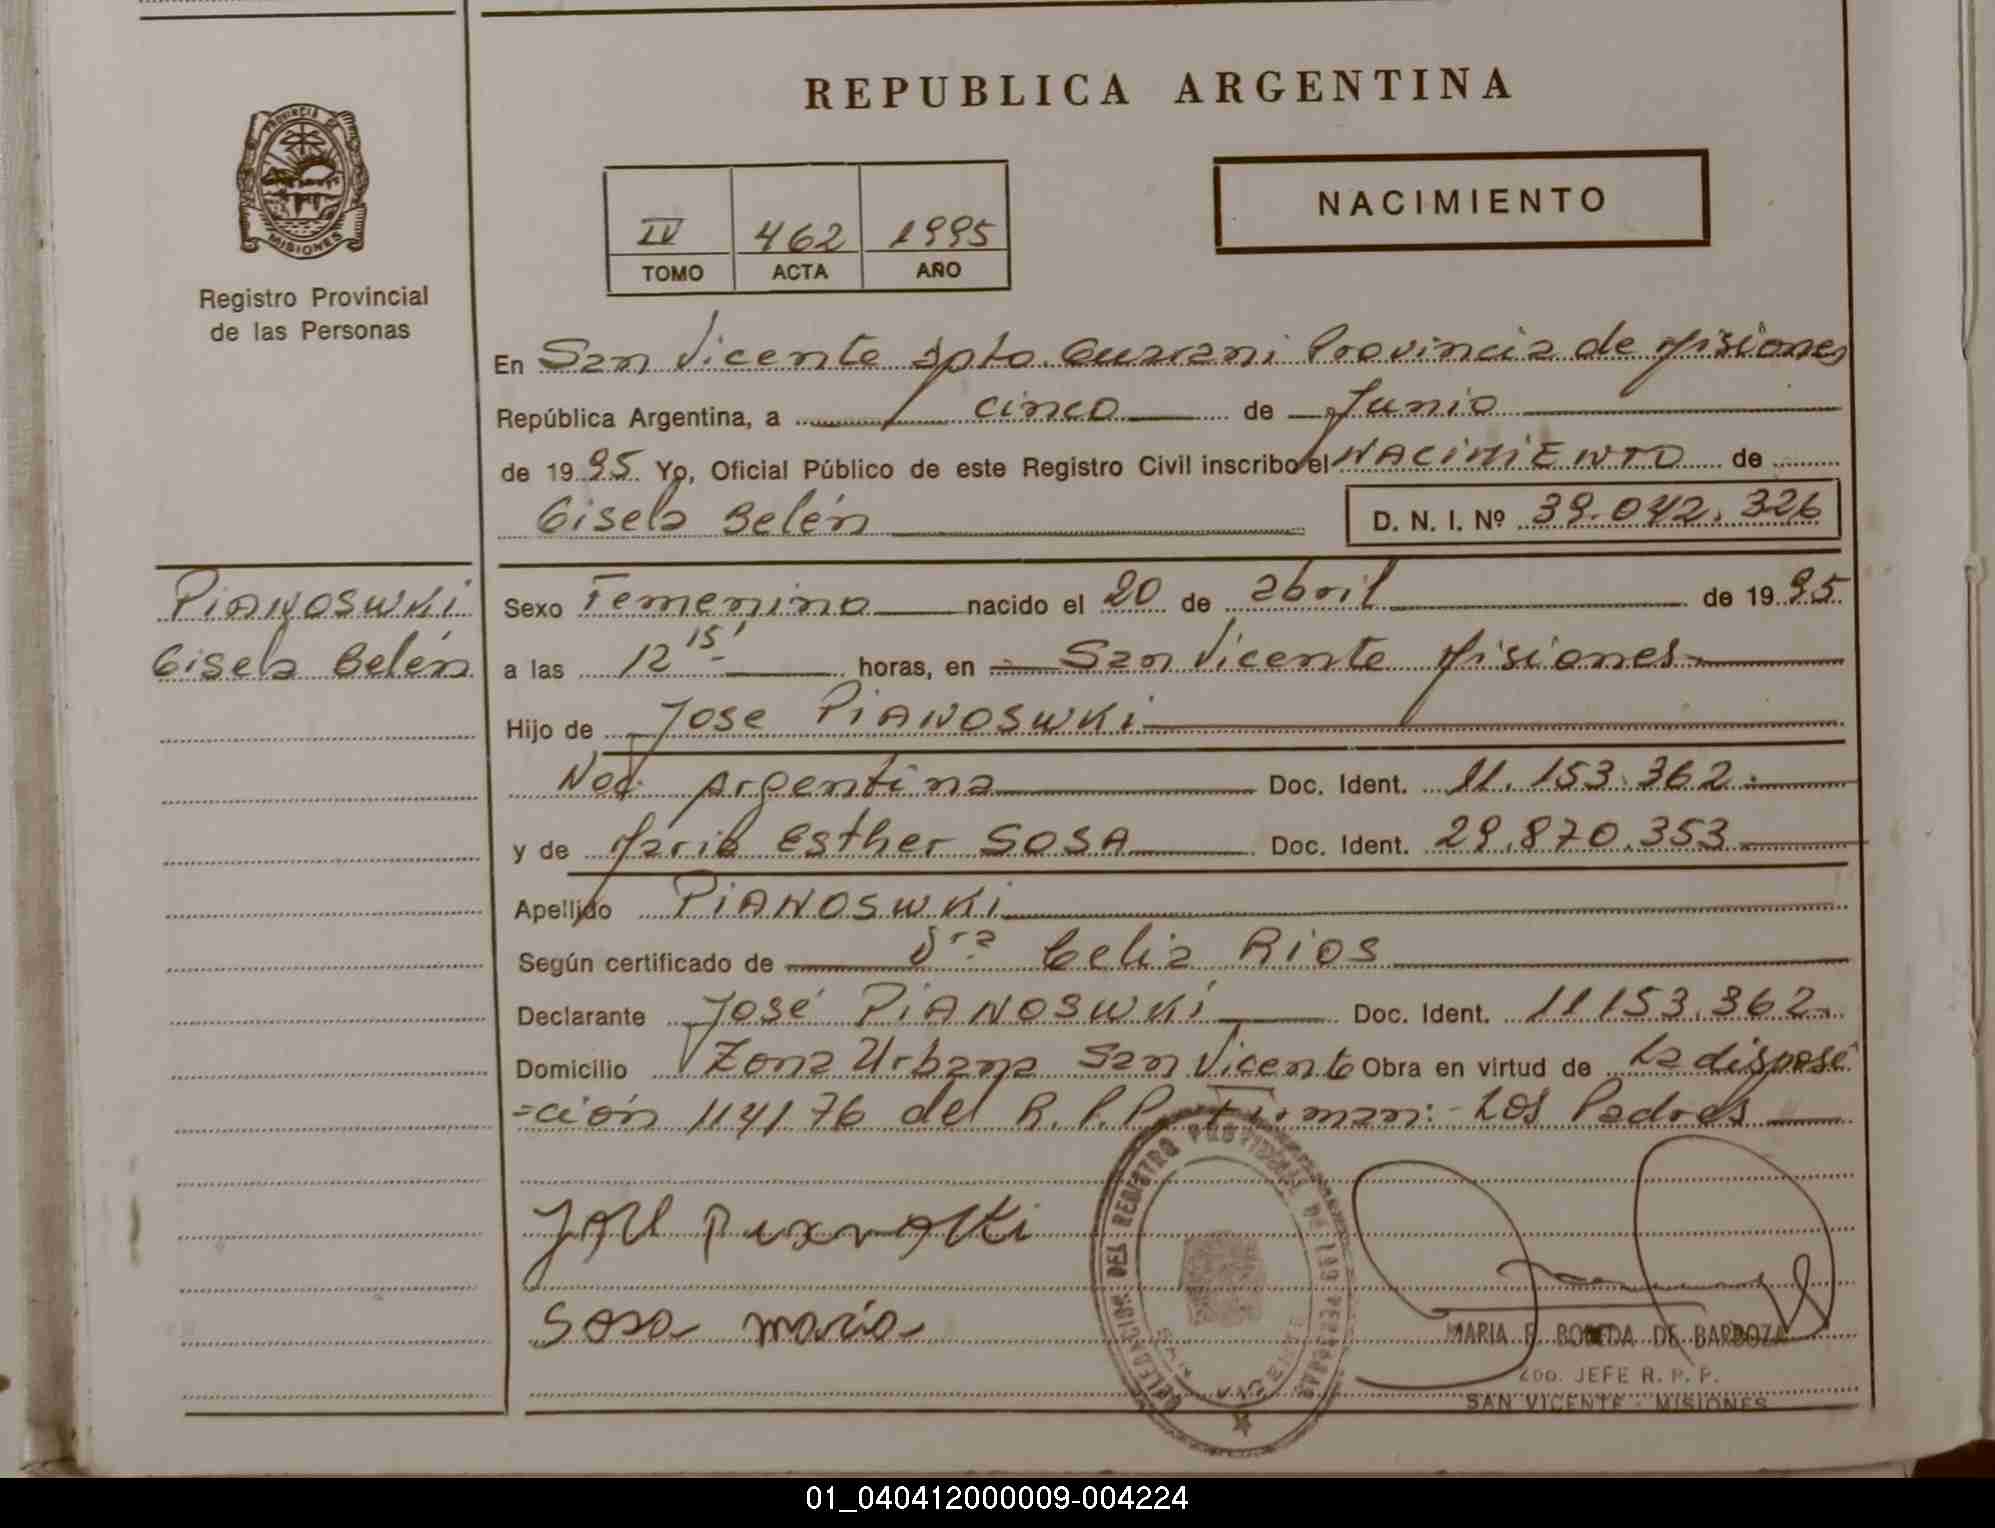 REPUBLICA ARGENTINA
PROVINCIA DE
MISIONES
Registro Provincial
de las Personas
IV 462 1995
TOMO ACTA AÑO
NACIMIENTO
En San Vicente Dpto. Guarani Provincia de Misiones
República Argentina, a cinco de Junio
de 1995 Yo, Oficial Público de este Registro Civil inscribo el NACIMIENTO de
Gisela Belén D. N. I. Nº 39.042.326
PIANOSWKI
Gisela Belén
Sexo Femenino nacido el 20 de abril de 1995
a las 12 15' horas, en San Vicente Misiones
Hijo de Jose PIANOSWKI
Nac. Argentina Doc. Ident. 11.153.362.
y de Maria Esther SOSA Doc. Ident. 29.870.353
Apellido PIANOSWKI
Según certificado de Dra Celia Rios
Declarante José PIANOSWKI Doc. Ident. 11153.362.
Domicilio Zona Urbana San Vicente Obra en virtud de La disposi
=ción 114/76 del R.P.P. Firman:- Los Padres
Sosa maria
DELEGACION DEL REGISTRO PROVINCIAL DE LAS PERSONAS
SAN VICENTE
MARIA E. BOBEDA DE BARBOZA
2DO. JEFE R. P. P.
SAN VICENTE - MISIONES
01_040412000009-004224